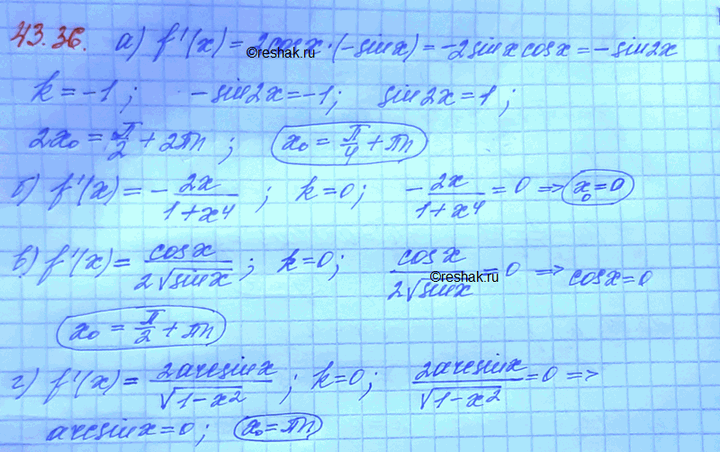 43.36. а) f'(x) = 2cosx·(-sinx) = -2sinx cosx = -sin2x
©reshak.ru
k = -1; -sin2x = -1; sin2x = 1;
2x₀ = π/2 + 2πn; x₀ = π/4 + πn
б) f'(x) = - 2x/(1+x⁴); k=0; - 2x/(1+x⁴) = 0 => x₀ = 0
в) f'(x) = cosx/(2√sinx); k=0; cosx/(2√sinx) = 0 => cosx=0
©reshak.ru
x₀ = π/2 + πn
г) f'(x) = 2arcsinx/√(1-x²); k=0; 2arcsinx/√(1-x²) = 0 =>
arcsinx=0; x₀=πn